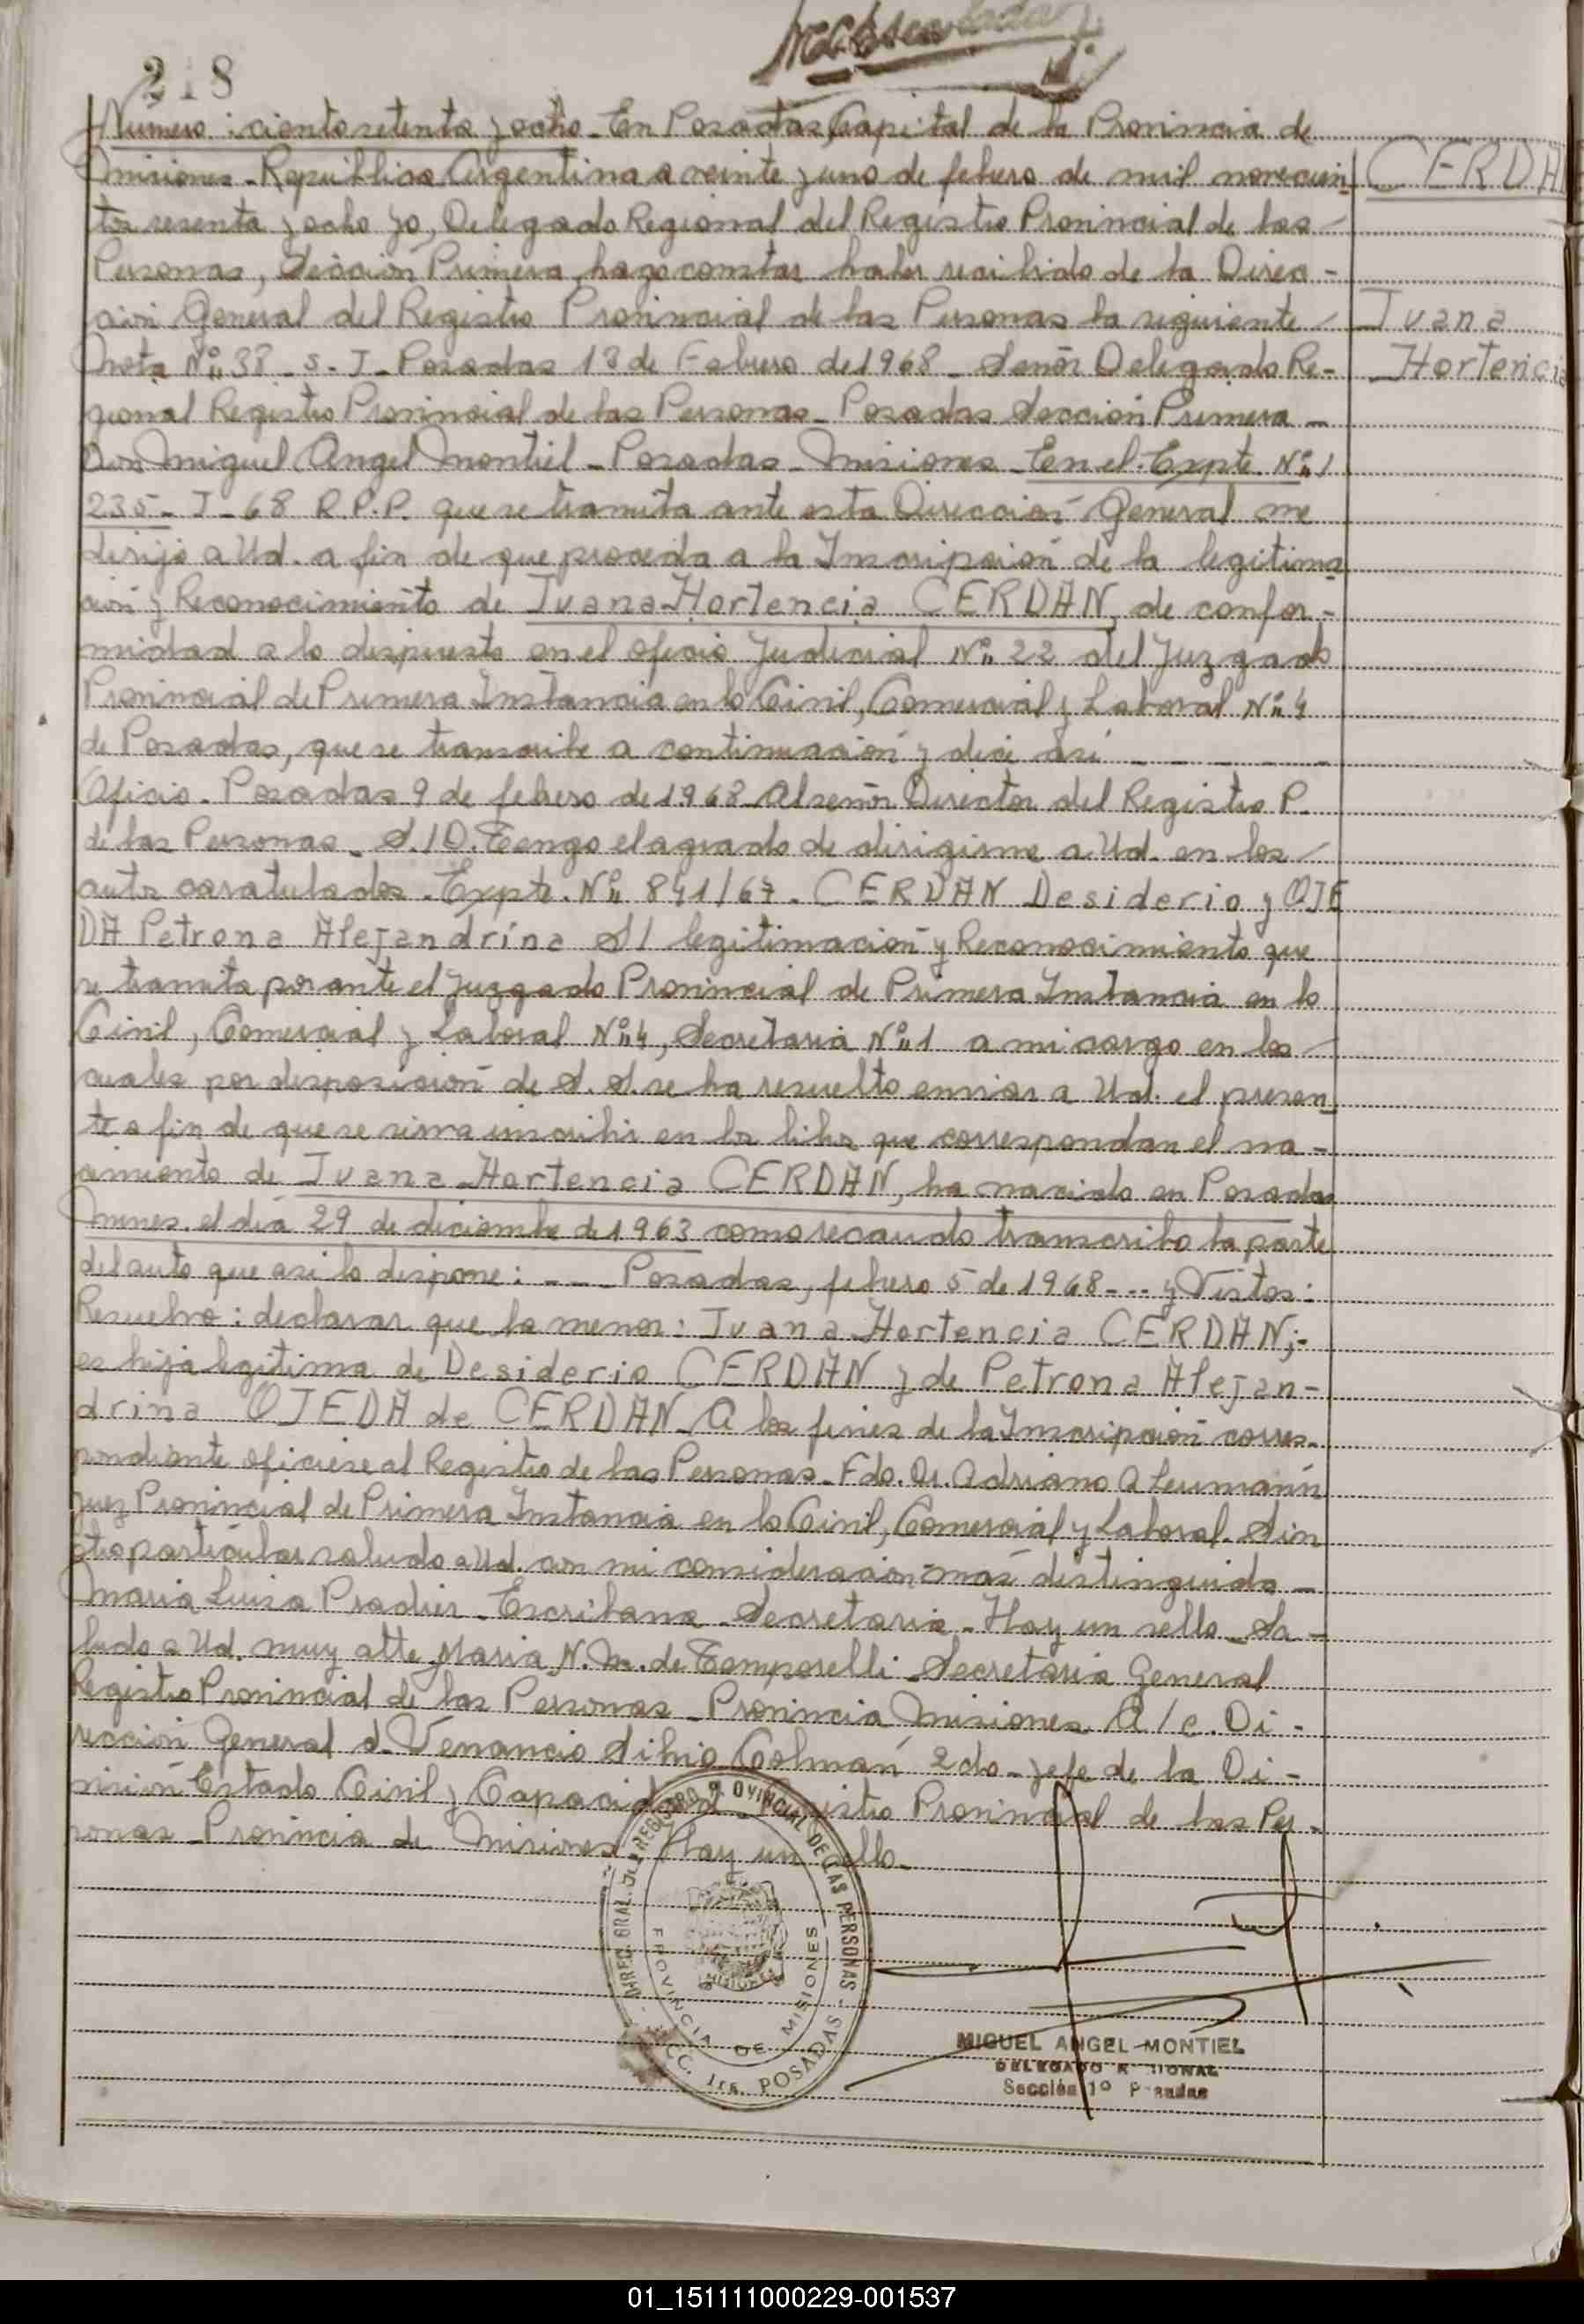 Mecanografiada
218
Número: ciento setenta y ocho - En Posadas, Capital de la Provincia de
Misiones - República Argentina a veinte y uno de febrero de mil novecien-
tos sesenta y ocho yo, Delegado Regional del Registro Provincial de las
Personas, Sección Primera, hago constar haber recibido de la Direc-
ción General del Registro Provincial de las Personas la siguiente
Nota Nº 38 - S - J - Posadas 13 de Febrero de 1968 - Señor Delegado Re-
gional Registro Provincial de las Personas - Posadas Sección Primera -
Don Miguel Angel Montiel - Posadas - Misiones - En el Expte. Nº 1
235 - J - 68 R.P.P. que se tramita ante esta Dirección General me
dirijo a Ud. a fin de que proceda a la Inscripción de la legitima-
ción y Reconocimiento de Juana Hortencia CERDAN, de confor-
midad a lo dispuesto en el oficio Judicial Nº 22 del Juzgado
Provincial de Primera Instancia en lo Civil, Comercial y Laboral Nº 4
de Posadas, que se transcribe a continuación y dice así - - - - -
Oficio - Posadas 9 de febrero de 1968 - Al señor Director del Registro P.
de las Personas - S./D. Tengo el agrado de dirigirme a Ud. en los
autos caratulados - Expte. Nº 841/67 - CERDAN Desiderio y OJE
DA Petrona Alejandrina S/ legitimación y Reconocimiento que
se tramita por ante el Juzgado Provincial de Primera Instancia en lo
Civil, Comercial y Laboral Nº 4, Secretaria Nº 1 a mi cargo en los
cuales por disposición de S. S. se ha resuelto enviar a Ud. el presen-
te a fin de que se sirva inscribir en los libros que correspondan el na-
cimiento de Juana Hortencia CERDAN, ha nacido en Posadas
Mnes. el día 29 de diciembre de 1963 como recaudo transcribo la parte
del auto que así lo dispone: - - - Posadas, febrero 5 de 1968 - - - y Vistos:
Resuelvo: declarar que la menor: Juana Hortencia CERDAN;-
es hija legítima de Desiderio CERDAN y de Petrona Alejan-
drina OJEDA de CERDAN - A los fines de la Inscripción corres-
pondiente ofíciese al Registro de las Personas - Fdo. Dr. Adriano A Leumann
Juez Provincial de Primera Instancia en lo Civil, Comercial y Laboral. Sin
otro particular saludo a Ud. con mi consideración más distinguida -
Maria Luisa Pradier - Escribana - Secretaria - Hay un sello - Sa-
ludo a Ud. muy atte Maria N. M. de Temporelli - Secretaria General
Registro Provincial de las Personas - Provincia Misiones A/c. Di-
rección General d. Venancio Silvio Colmán 2do - Jefe de la Di-
visión Estado Civil y Capacidad - Registro Provincial de las Per-
sonas - Provincia de Misiones - Hay un sello -
CERDAN
Juana
Hortencia
DIREC. GRAL. DEL REGISTRO PROVINCIAL DE LAS PERSONAS - SECC. 1ra. POSADAS -
PROVINCIA DE MISIONES
MISIONES
MIGUEL ANGEL MONTIEL
DELEGADO REGIONAL
Sección 1º Posadas
01_151111000229-001537